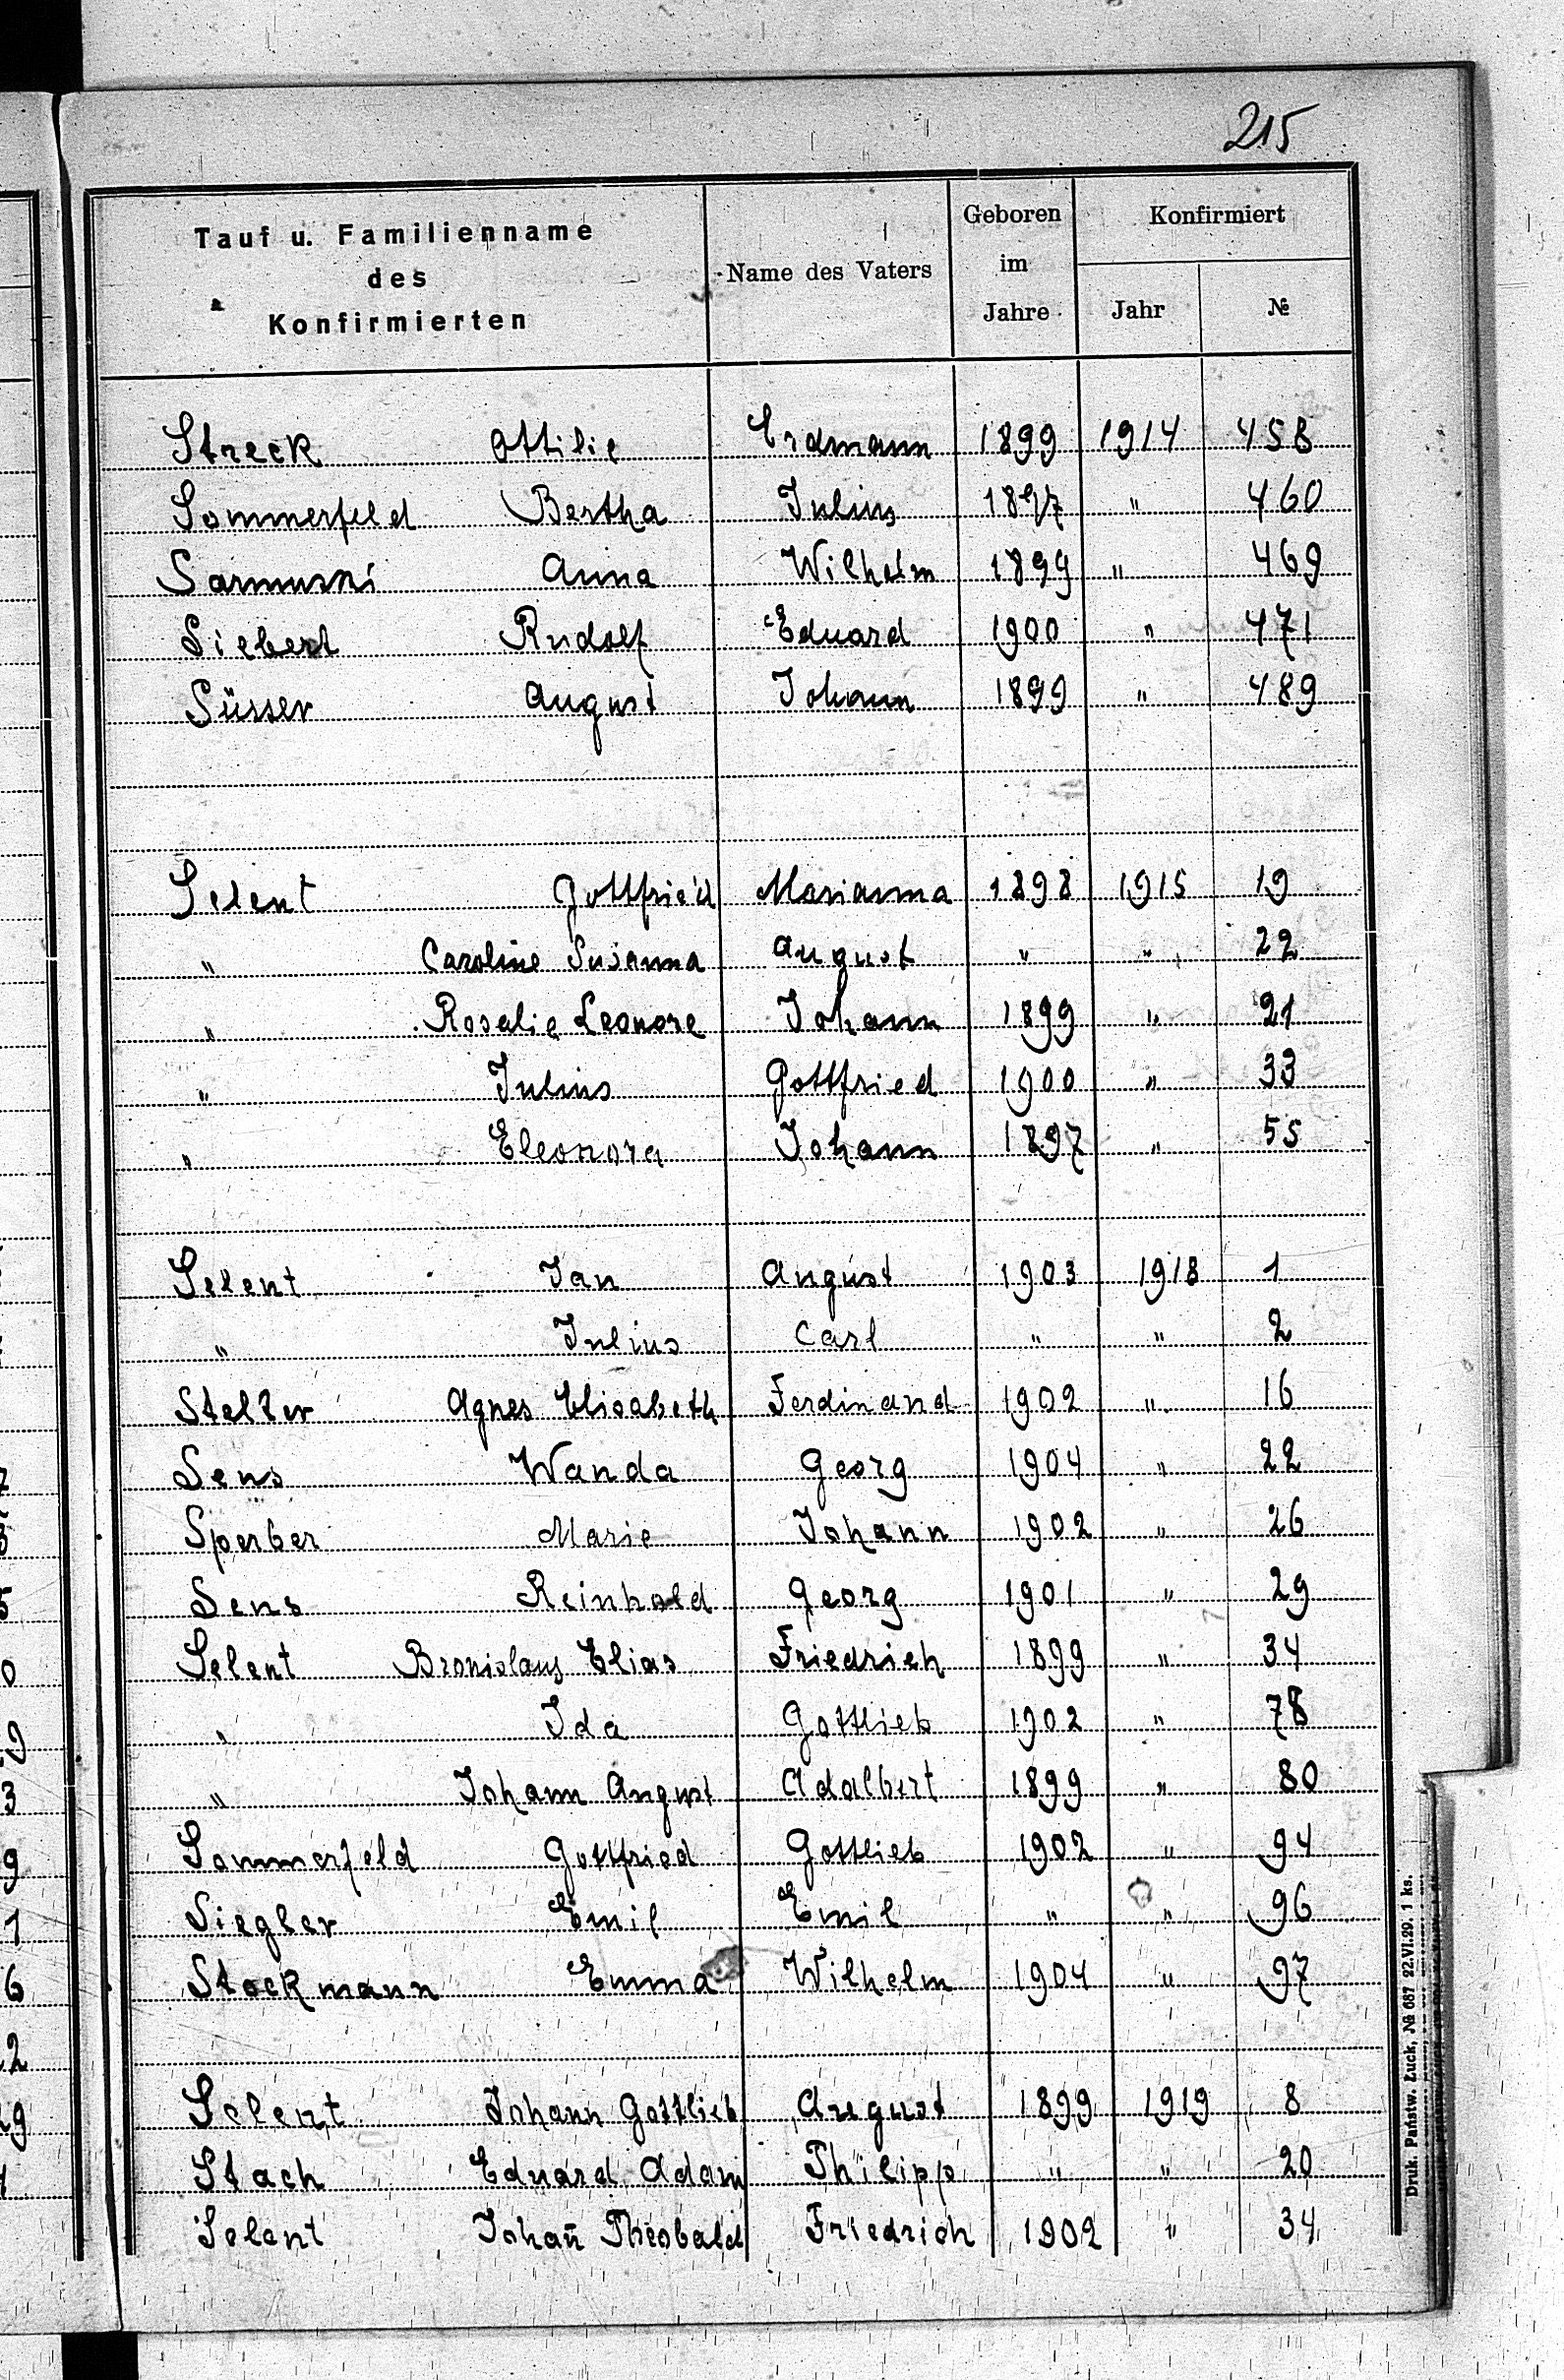 215
Tauf u. Familienname des Konfirmierten | Name des Vaters | Geboren im Jahre | Konfirmiert Jahr | №
Streck Ottilie Erdmann 1899 1914 458
Sommerfeld Bertha Julius 1897 " 460
Sarmuski Anna Wilhelm 1899 " 469
Siebert Rudolf Eduard 1900 " 471
Süsser August Johann 1899 " 489
Selent Gottfried Marianna 1898 1915 19
" Caroline Susanna August " " 22
" Rosalie Leonore Johann 1899 " 21
" Julius Gottfried 1900 " 33
" Eleonora Johann 1897 " 55
Selent Jan August 1903 1918 1
" Julius Carl " " 2
Stelter Agnes Elisabeth Ferdinand 1902 " 16
Sens Wanda Georg 1904 " 22
Sperber Marie Johann 1902 " 26
Sens Reinhold Georg 1901 " 29
Selent Bronislaus Elias Friedrich 1899 " 34
" Ida Gottlieb 1902 " 78
" Johann August Adalbert 1899 " 80
Sommerfeld Gottfried Gottlieb 1902 " 94
Siegler Emil Emil " " 96
Stockmann Emma Wilhelm 1904 " 97
Selent Johann Gottlieb August 1899 1919 8
Stach Eduard Adam Philipp " " 20
Selent Johan̄ Theobald Friedrich 1902 " 34
Druk. Państw. Łuck, № 687 22.VI.29. 1 ks.